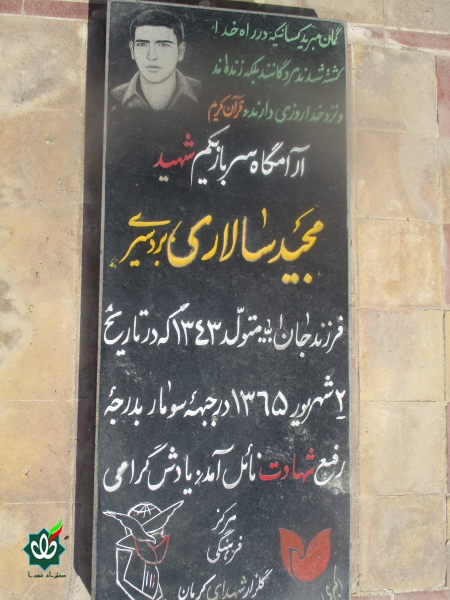 گمان مبرید کسانیکه در راه خدا
کشته شدند مردگانند بلکه زنده‌اند
و نزد خدا روزی دارند قرآن کریم
آرامگاه سرباز یکم شهید
مجید سالاری بردسیری
فرزند جان الله متولد ۱۳۴۳ که در تاریخ
۲ شهریور ۱۳۶۵ در جبهه سومار بدرجه
رفیع شهادت نائل آمد، یادش گرامی
مرکز
فرهنگی
گلزار شهدای کرمان